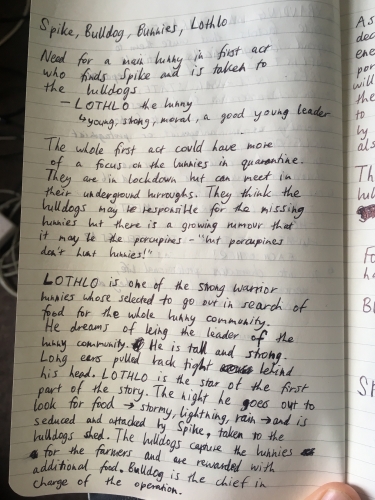 Spike, Bulldog, Bunnies, Lothlo
Need for a main bunny in first act
who finds Spike and is taken to
the bulldogs
- LOTHLO the bunny
↳ young, strong, moral, a good young leader
The whole first act could have more
of a focus on the bunnies in quarantine.
They are in lockdown but can meet in
their underground burroughs. They think the
bulldogs may be responsible for the missing
bunnies but there is a growing rumour that
it may be the porcupines - "but porcupines
don't hunt bunnies!"
LOTHLO is one of the strong warrior
bunnies whose selected to go out in search of
food for the whole bunny community.
He dreams of being the leader of the
bunny community. He is tall and strong.
Long ears pulled back tight behind
his head. LOTHLO is the star of the first
part of the story. The night he goes out to
look for food → stormy, lightning, rain → and is
seduced and attacked by Spike, taken to the
bulldogs shed. The bulldogs capture the bunnies
for the farmers and are rewarded with
additional food. Bulldog is the chief in
charge of the operation.
As
dec
ene
por
will
the
to
by
als
Th